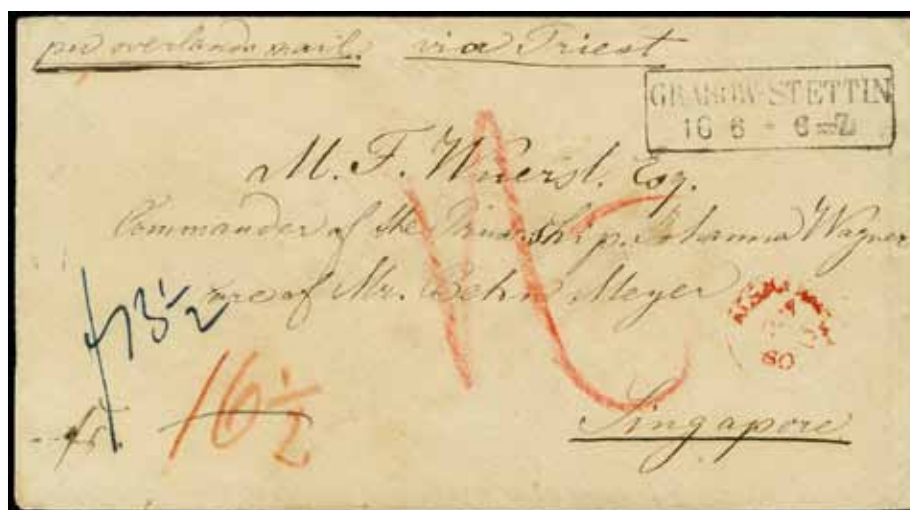 per overland mail. via Triest
GRABOW-STETTIN
16 6 * 6=7
M. F. Wuerst. Esq.
Commander of the Ship. Johanna Wagner
care of Mr. Behn Meyer
f13½
16½
fr.
80
Singapore